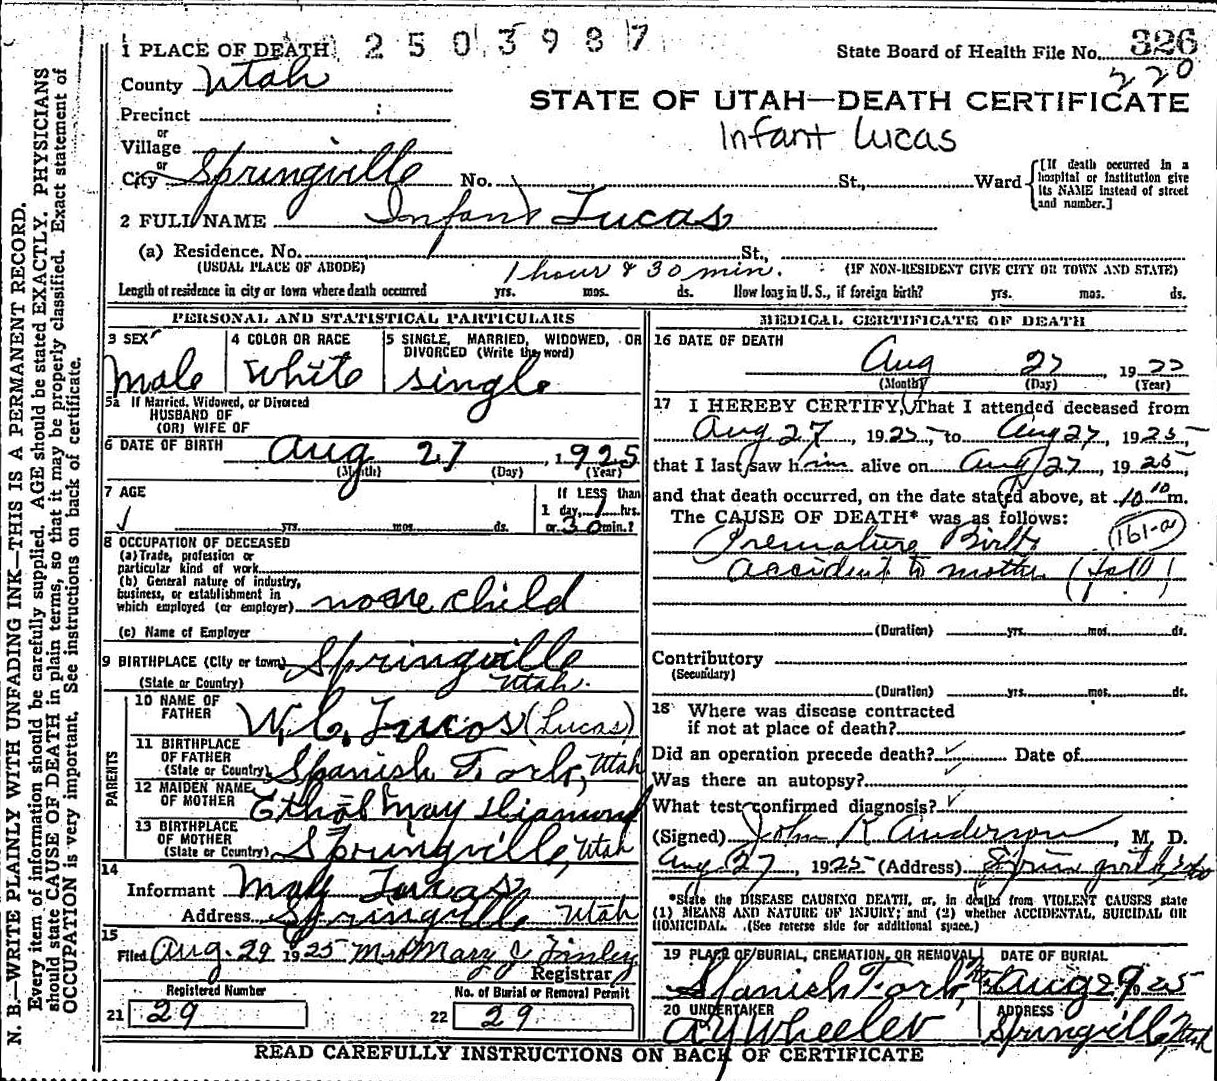 1 PLACE OF DEATH 2503987 State Board of Health File No. 326
220
County Utah
STATE OF UTAH—DEATH CERTIFICATE
Precinct
Infant Lucas
or
Village
or
City Springville No. St., Ward [If death occurred in a hospital or institution give its NAME instead of street and number.]
2 FULL NAME Infant Lucas
(a) Residence. No. St.,
(USUAL PLACE OF ABODE) 1 hour & 30 min. (IF NON-RESIDENT GIVE CITY OR TOWN AND STATE)
Length of residence in city or town where death occurred yrs. mos. ds. How long in U. S., if foreign birth? yrs. mos. ds.
PERSONAL AND STATISTICAL PARTICULARS
3 SEX 4 COLOR OR RACE 5 SINGLE, MARRIED, WIDOWED, OR DIVORCED (Write the word)
Male White Single
5a If Married, Widowed, or Divorced
HUSBAND OF
(OR) WIFE OF
6 DATE OF BIRTH Aug 27, 1925
(Month) (Day) (Year)
7 AGE If LESS than
1 day, 1 hrs.
yrs. mos. ds. or 30 min.?
8 OCCUPATION OF DECEASED
(a) Trade, profession or
particular kind of work
(b) General nature of industry,
business, or establishment in
which employed (or employer) none child
(c) Name of Employer
9 BIRTHPLACE (City or town) Springville
(State or Country) Utah.
PARENTS
10 NAME OF
FATHER W. C. Lucas (Lucas)
11 BIRTHPLACE
OF FATHER
(State or Country) Spanish Fork, Utah
12 MAIDEN NAME
OF MOTHER Ethel May Diamond
13 BIRTHPLACE
OF MOTHER
(State or Country) Springville, Utah
14
Informant May Lucas
Address Springville Utah
15
Filed Aug. 29 1925 Mrs Mary J. Finley
Registrar
Registered Number No. of Burial or Removal Permit
21 29 22 29
MEDICAL CERTIFICATE OF DEATH
16 DATE OF DEATH
Aug 27, 19
(Month) (Day) (Year)
17 I HEREBY CERTIFY, That I attended deceased from
Aug 27, 1925, to Aug 27, 1925,
that I last saw him alive on Aug 27, 1925,
and that death occurred, on the date stated above, at 10 10 m.
The CAUSE OF DEATH* was as follows:
Premature Birth (161-a)
accident to mother (fall)
(Duration) yrs. mos. ds.
Contributory
(Secondary)
(Duration) yrs. mos. ds.
18 Where was disease contracted
if not at place of death?
Did an operation precede death? ✓ Date of
Was there an autopsy? ✓
What test confirmed diagnosis? ✓
(Signed) John R Anderson, M. D.
Aug 27, 1925 (Address) Springville, Utah
*State the DISEASE CAUSING DEATH, or, in deaths from VIOLENT CAUSES state
(1) MEANS AND NATURE OF INJURY; and (2) whether ACCIDENTAL, SUICIDAL OR
HOMICIDAL. (See reverse side for additional space.)
19 PLACE OF BURIAL, CREMATION, OR REMOVAL DATE OF BURIAL
Spanish Fork, Aug 29 1925
20 UNDERTAKER ADDRESS
A Y Wheeler Springville Utah
READ CAREFULLY INSTRUCTIONS ON BACK OF CERTIFICATE
N. B.—WRITE PLAINLY WITH UNFADING INK—THIS IS A PERMANENT RECORD.
Every item of information should be carefully supplied. AGE should be stated EXACTLY. PHYSICIANS
should state CAUSE OF DEATH in plain terms, so that it may be properly classified. Exact statement of
OCCUPATION is very important. See instructions on back of certificate.